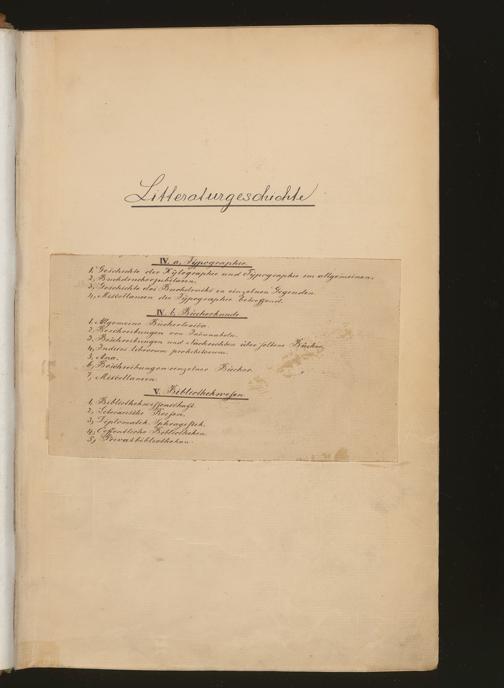 Litteraturgeschichte
IV. a. Typographie.
1, Geschichte der Xylographie und Typographie im allgemeinen.
2, Buchdruckerjubiläen.
3, Geschichte des Buchdrucks in einzelnen Gegenden.
4, Miscellaneen die Typographie betreffend.
IV. b. Bücherkunde
1, Allgemeine Bücherlexica.
2, Beschreibungen von Incunabeln.
3, Beschreibungen und Nachrichten über seltene Bücher.
4, Indices librorum prohibitorum.
5, Ana.
6, Beschreibungen einzelner Bücher.
7, Miscellaneen.
V. Bibliothekwesen.
1, Bibliothekwissenschaft.
2, Literarische Reisen.
3, Diplomatik. Sphragistik.
4, Oeffentliche Bibliotheken.
5, Privatbibliotheken.